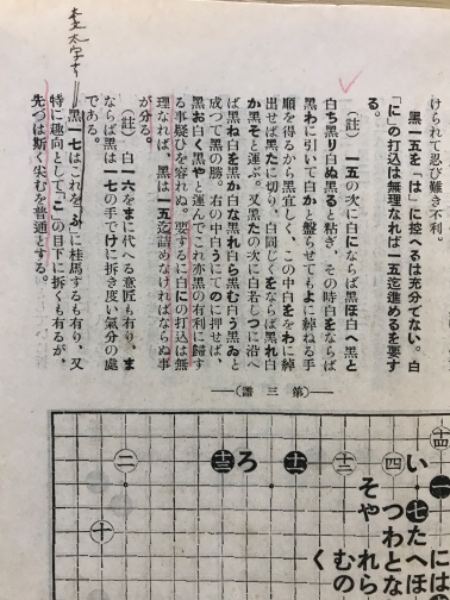 けられて忍び難き不利。
黒一五を「は」に控へるは充分でない。白
「に」の打込は無理なれば一五迄進めるを要す
る。
(註) 一五の次に白にならば黒ほ白へ黒と
白ち黒り白ぬ黒ると粘ぎ、その時白をならば
黒わに引いて白かと盤らせてもよに綽ねる手
順を得るから黒宜しく、この中白ををわに綽
出せば黒たに切り、白同じくをならば黒れ白
か黒そと運ぶ。又黒たの次に白若しつに沿へ
ば黒ね白を黒か白な黒れ白ら黒む白う黒ゐと
成つて黒の勝。右の中白うにてのに押せば、
黒お白く黒やと運んでこれ亦黒の有利に歸す
る事疑ひを容れぬ。要するに白にの打込は無
理なれば、黒は一五迄詰めなければならぬ事
が分る。
(註) 白一六をまに代へる意匠も有り、ま
ならば黒は一七の手でけに拆き度い氣分の處
である。
黒一七はこれを「ふ」に桂馬するも有り、又
特に趣向として「こ」の目下に拆くも有るが、
先づは斯く尖むを普通とする。
(第三譜)
二 十三 ろ 十一 十二 四 い 十四
一
そ 七
十 や つ た
わ と へ に
く む れ な ほ は
の ら